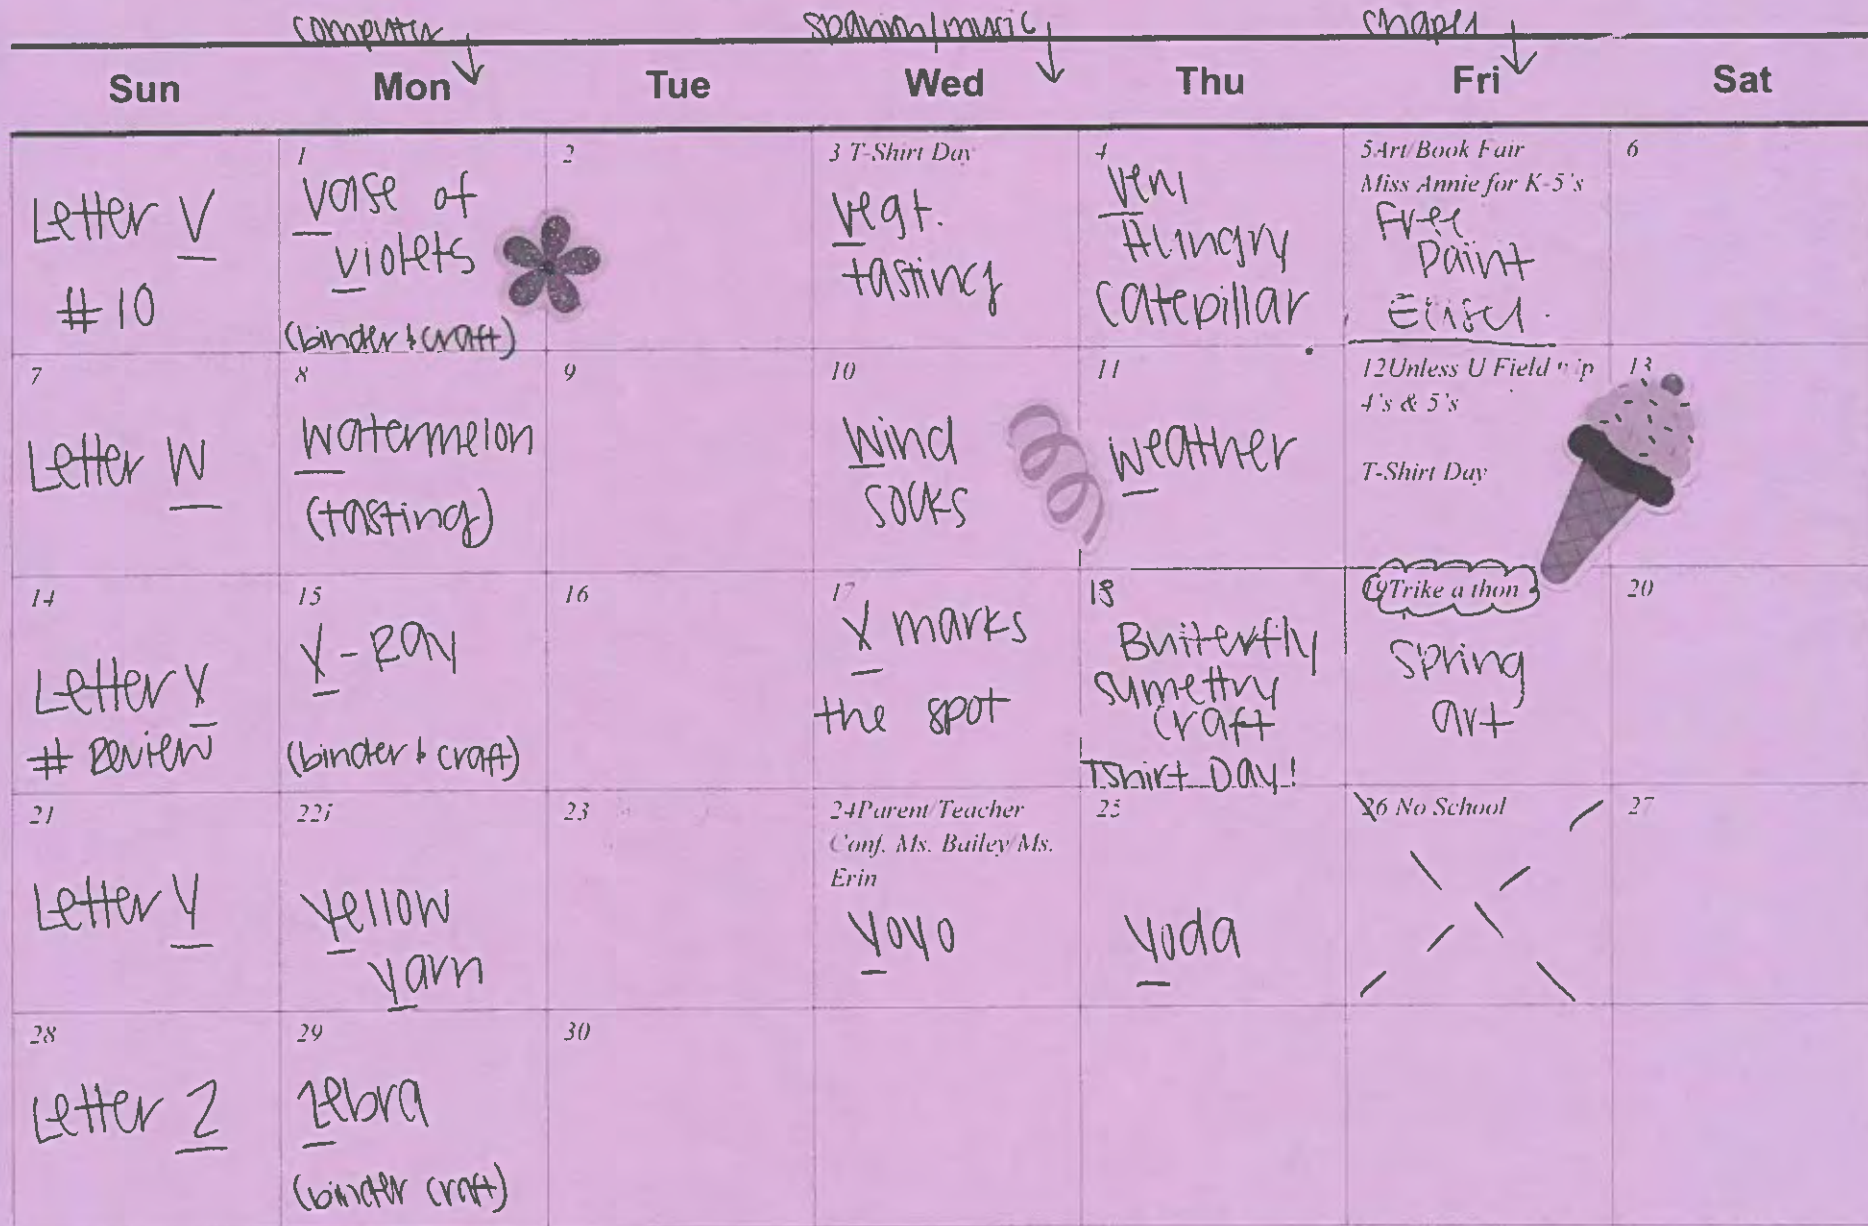 computer
spanish/music
chapel
Sun Mon Tue Wed Thu Fri Sat
Letter V
#10
1
Vase of
violets
(binder & craft)
2
3 T-Shirt Day
Vegt.
tasting
4
Very
Hungry
Catepillar
5Art/Book Fair
Miss Annie for K-5's
Free
Paint
6
7
Letter W
8
Watermelon
(tasting)
9
10
Wind
socks
11
Weather
12Unless U Field trip
4's & 5's
T-Shirt Day
13
14
Letter X
# Review
15
X-Ray
(binder & craft)
16
17
X marks
the spot
18
Butterfly
symettry
craft
Tshirt Day!
19Trike a thon
Spring
art
20
21
Letter Y
22i
Yellow
yarn
23
24Parent/Teacher
Conf. Ms. Bailey/Ms.
Erin
Yoyo
25
Yoda
26 No School
27
28
Letter Z
29
Zebra
(binder craft)
30